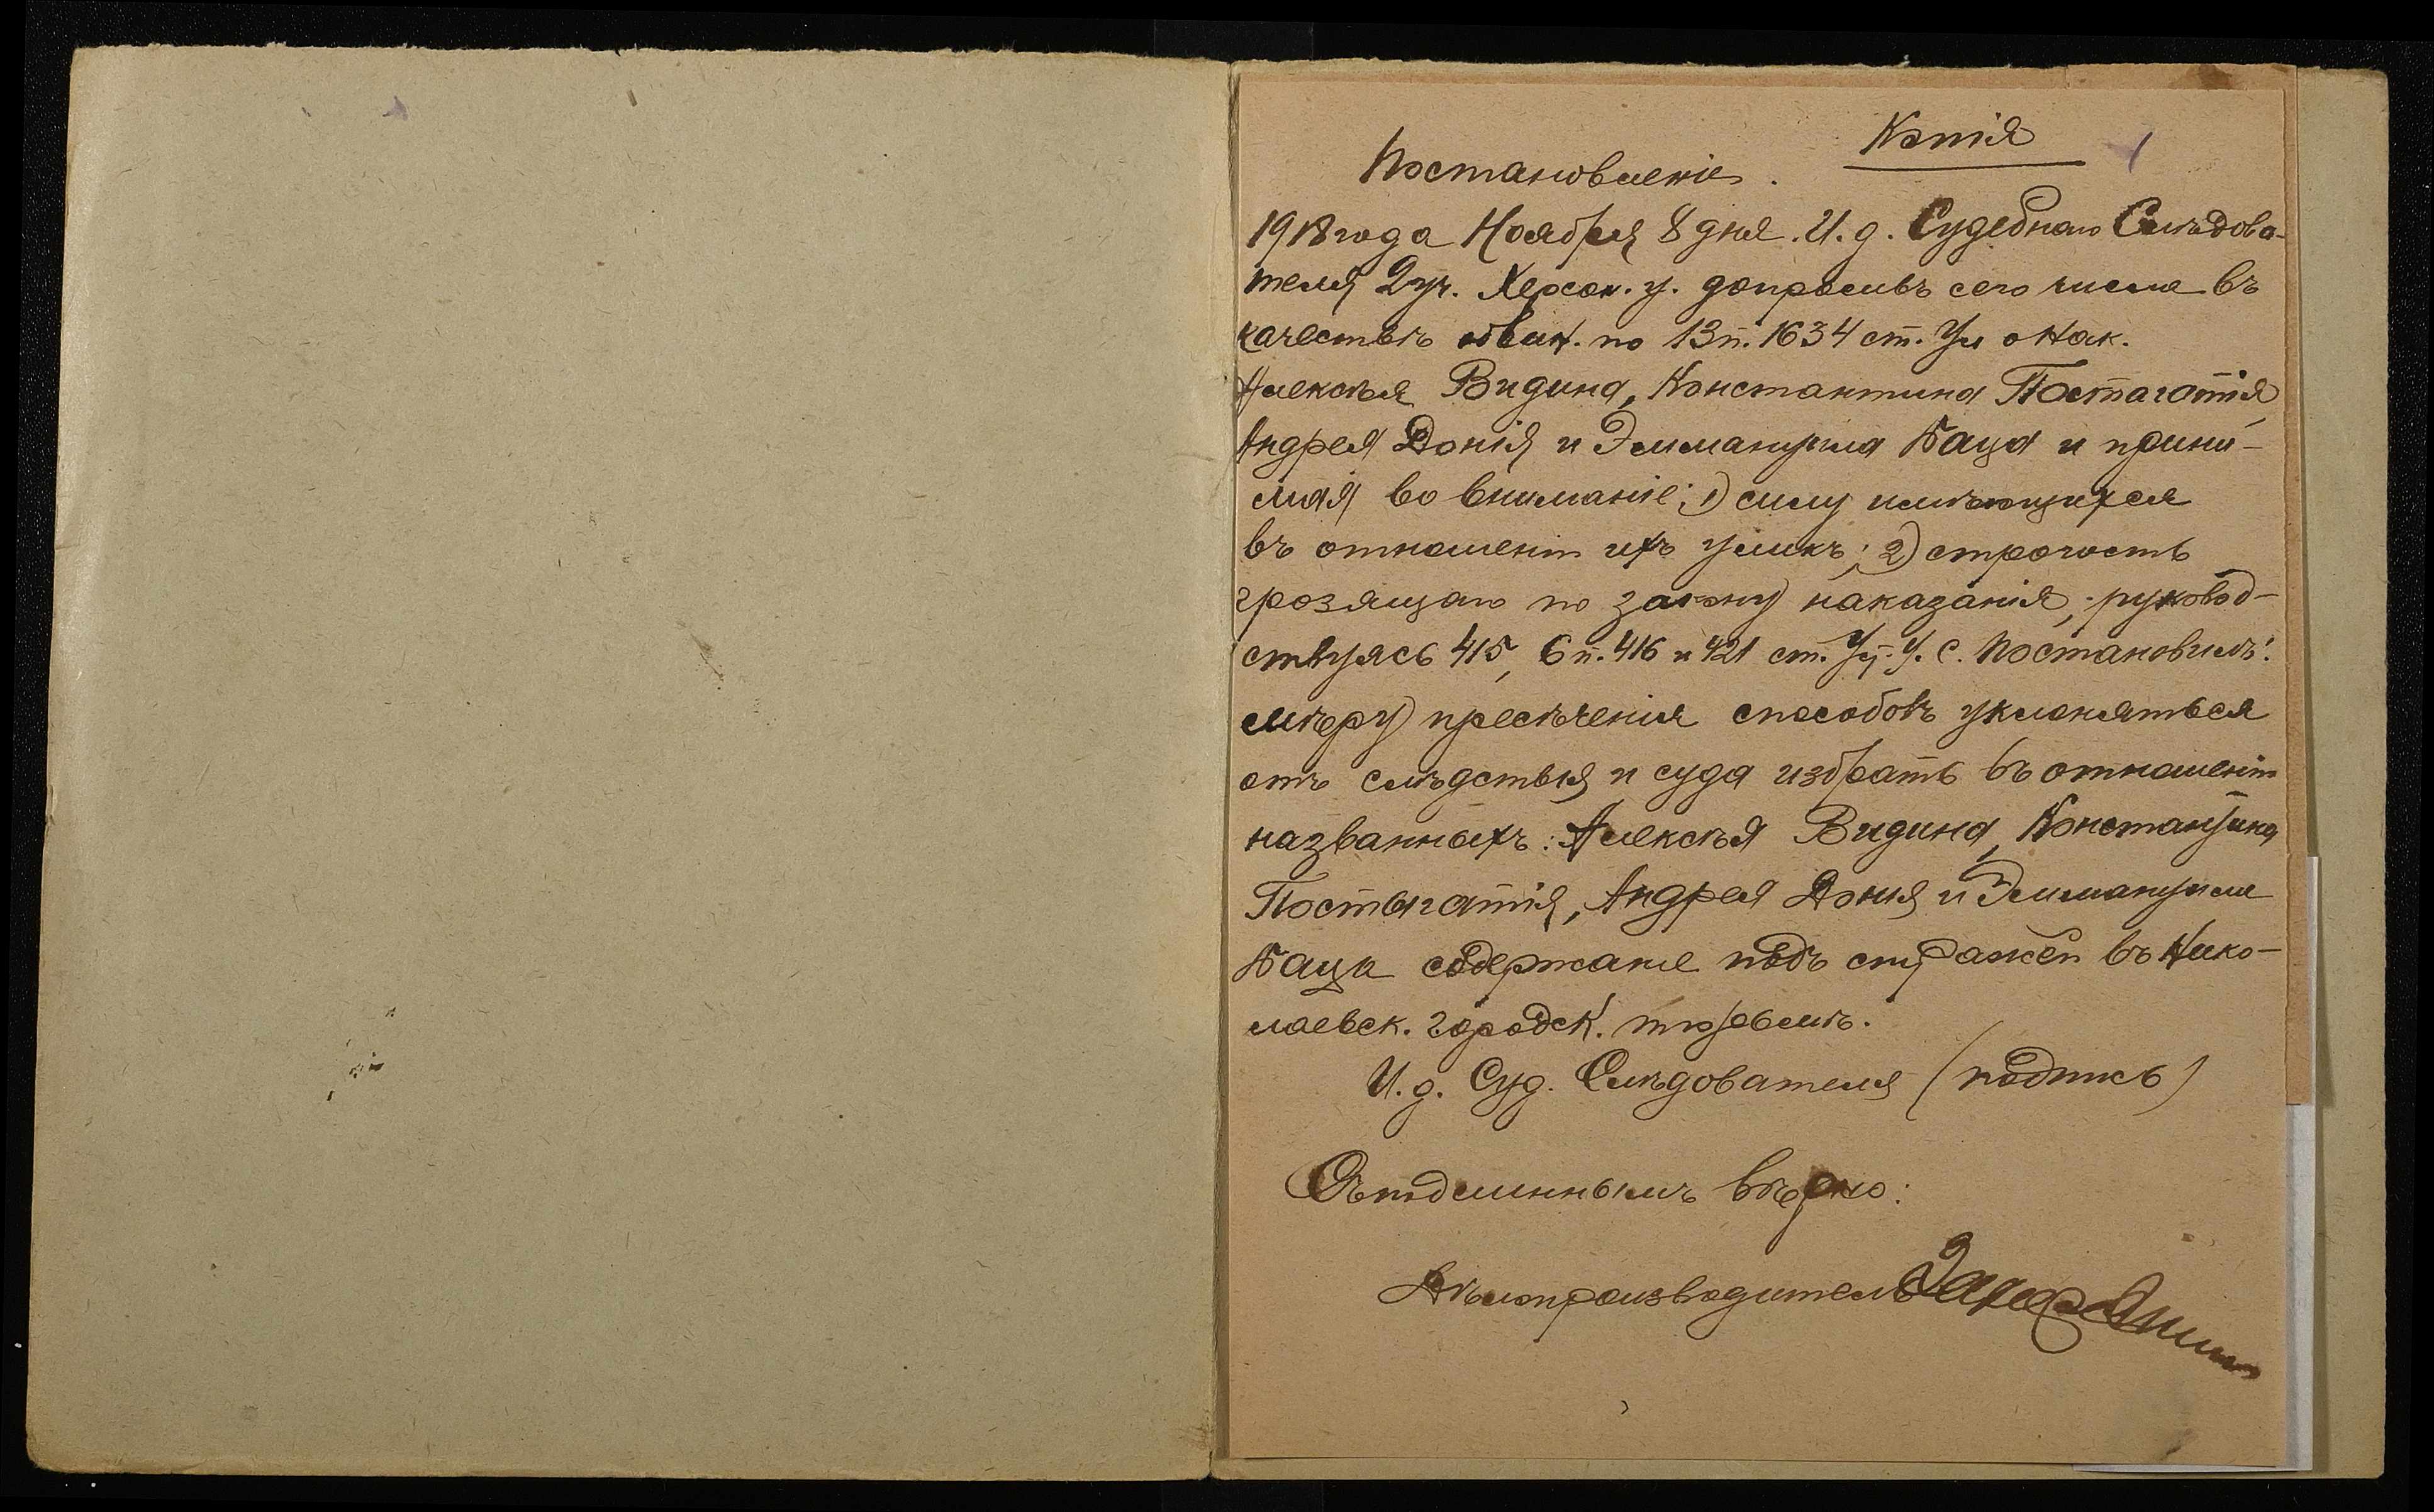 Копія
1
Постановленіе.
1918 года Ноября 8 дня. И. д. Судебнаго Слѣдова-
теля 2 уч. Херсон. у. допросивъ сего числа въ
качествѣ обвин. по 13 п. 1634 ст. Ул о Нак.
Алексѣя Видина, Константина Постагатія,
Андрея Донія и Эммануила Баца и прини-
мая во вниманіе: 1) силу имѣющихся
въ отношеніи ихъ уликъ; 2) строгость
грозящаго по закону наказанія, руковод-
ствуясь 415, 6 п. 416 и 421 ст. Уст. У. С. Постановилъ:
мѣру пресѣченія способовъ уклоняться
отъ слѣдствія и суда избрать въ отношеніи
названныхъ: Алексѣя Видина, Константина
Постыгатія, Андрея Донія и Эммануила
Баца содержаніе подъ стражей въ Нико-
лаевск. городск. тюрьмѣ.
И. д. Суд. Слѣдователя (подпись)
Съ подлиннымъ вѣрно:
Дѣлопроизводитель